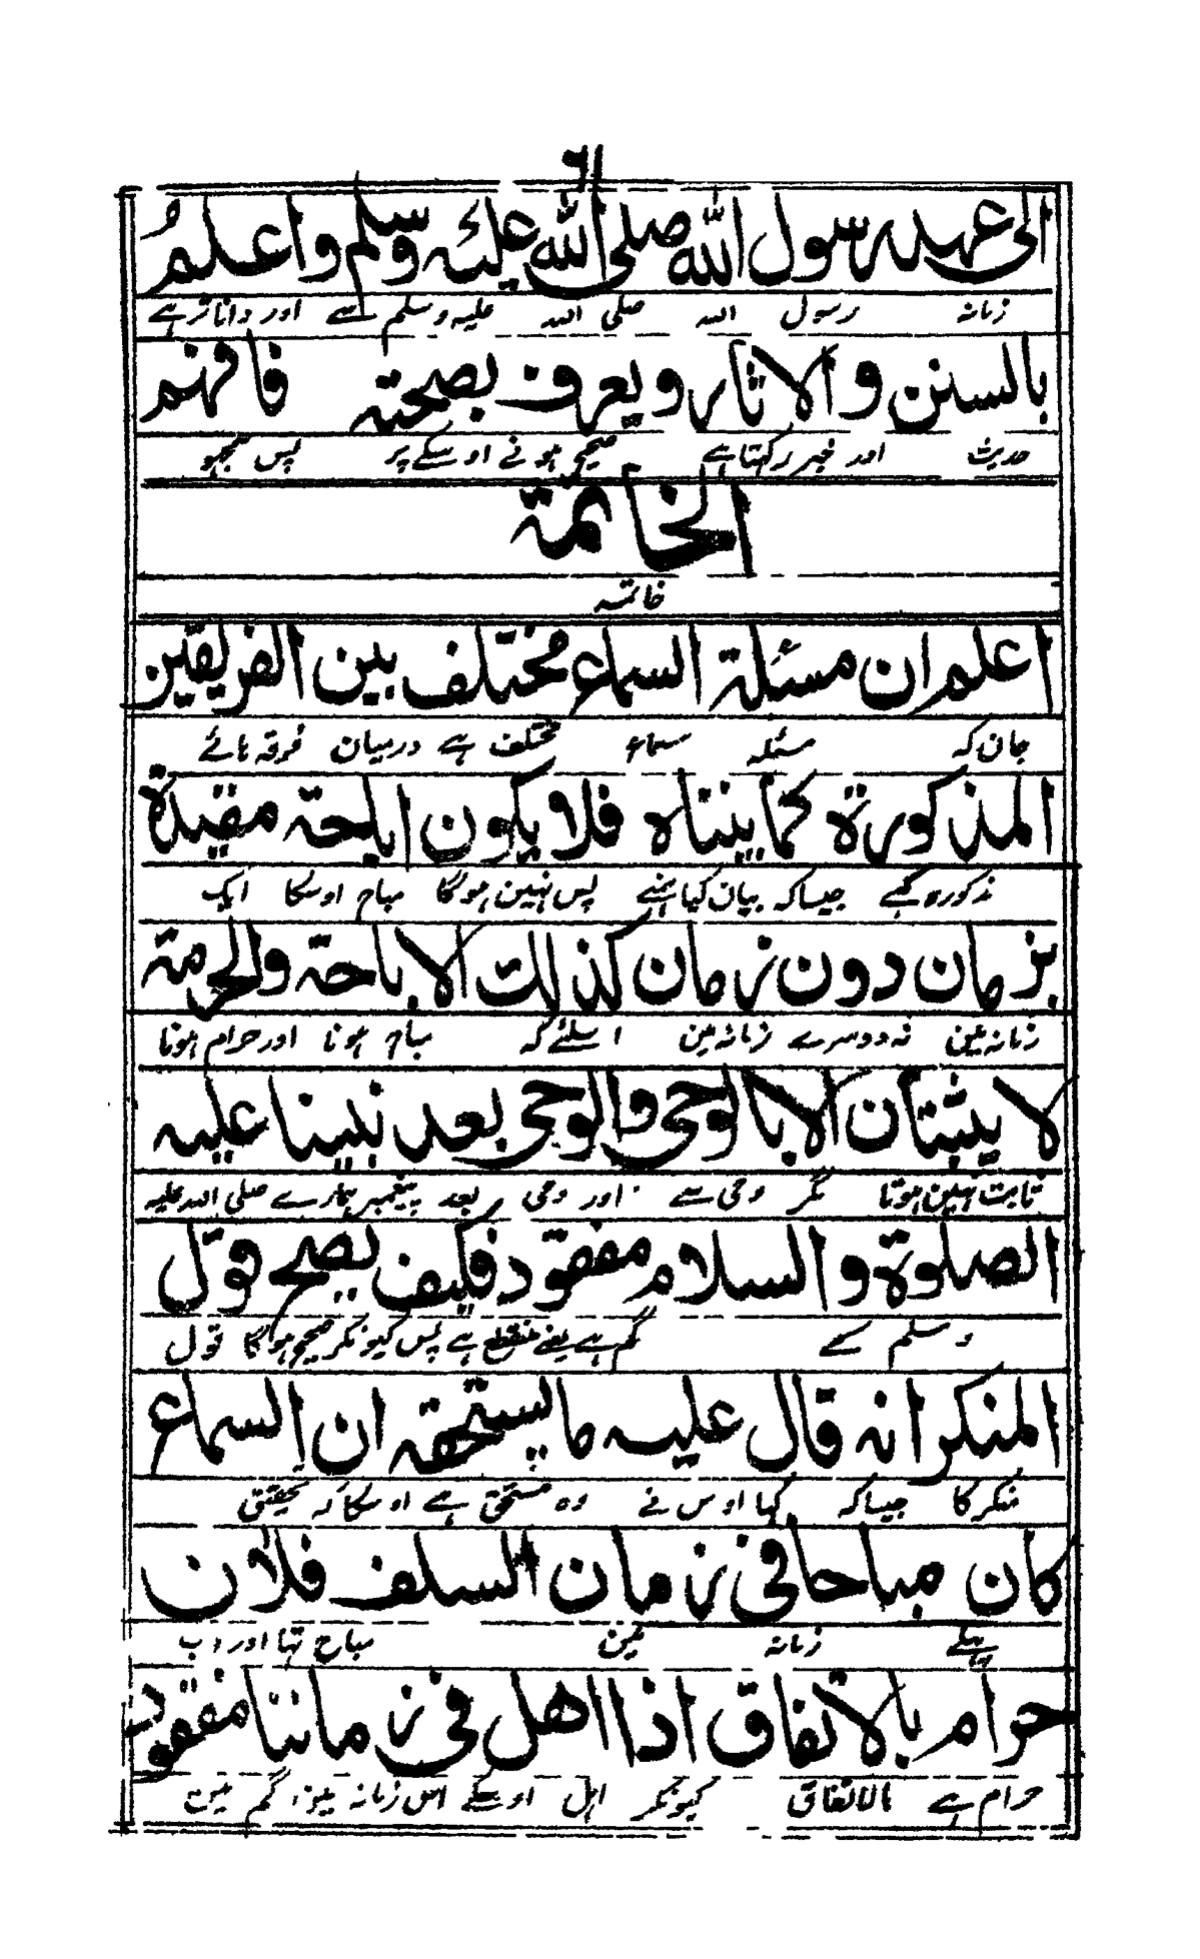 ٦١
الی عهد رسول الله صلی الله علیه وسلم واعلم
زمانہ رسول اللہ صلی اللہ علیہ وسلم سے اور دانا تر ہے
بالسنن والاثار ویعرف بصحته فافهم
حدیث اور خبر رکہتا ہے صحیح ہونے اوسکے پر پس سمجہو
الخاتمة
خاتمہ
اعلم ان مسئلة السماع مختلف بین الفریقین
جان کہ مسئلہ سماع مختلف ہے درمیان فرقہ ہائے
المذکورة کما بیناه فلا یکون اباحة مقیدة
مذکورہ کے جیسا کہ بیان کیا ہمنے پس نہین ہوگا مباح اوسکا ایک
بزمان دون زمان کذلک الاباحة والحرمة
زمانہ مین نہ دوسرے زمانہ مین اسلئے کہ مباح ہونا اور حرام ہونا
لا یثبتان الا بالوحی والوحی بعد نبینا علیه
ثابت نہین ہوتا مگر وحی سے اور وحی بعد پیغمبر ہمارے صلی اللہ علیہ
الصلوة والسلام مفقود فکیف یصح قول
وسلم کے گم ہے یعنے منقطع ہے پس کیونکر صحیح ہوگا قول
المنکر انه قال علیه ما یستحقه ان السماع
منکر کا جیسا کہ کہا اوس نے وہ مستحق ہے اوسکا کہ تحقیق
کان مباحا فی زمان السلف فلان
پہلے زمانہ مین مباح تہا اور اب
حرام بالاتفاق اذا اهل فی زماننا مفقود
حرام ہے بالاتفاق کیونکر اہل اوسکے اس زمانہ مین گم ہین